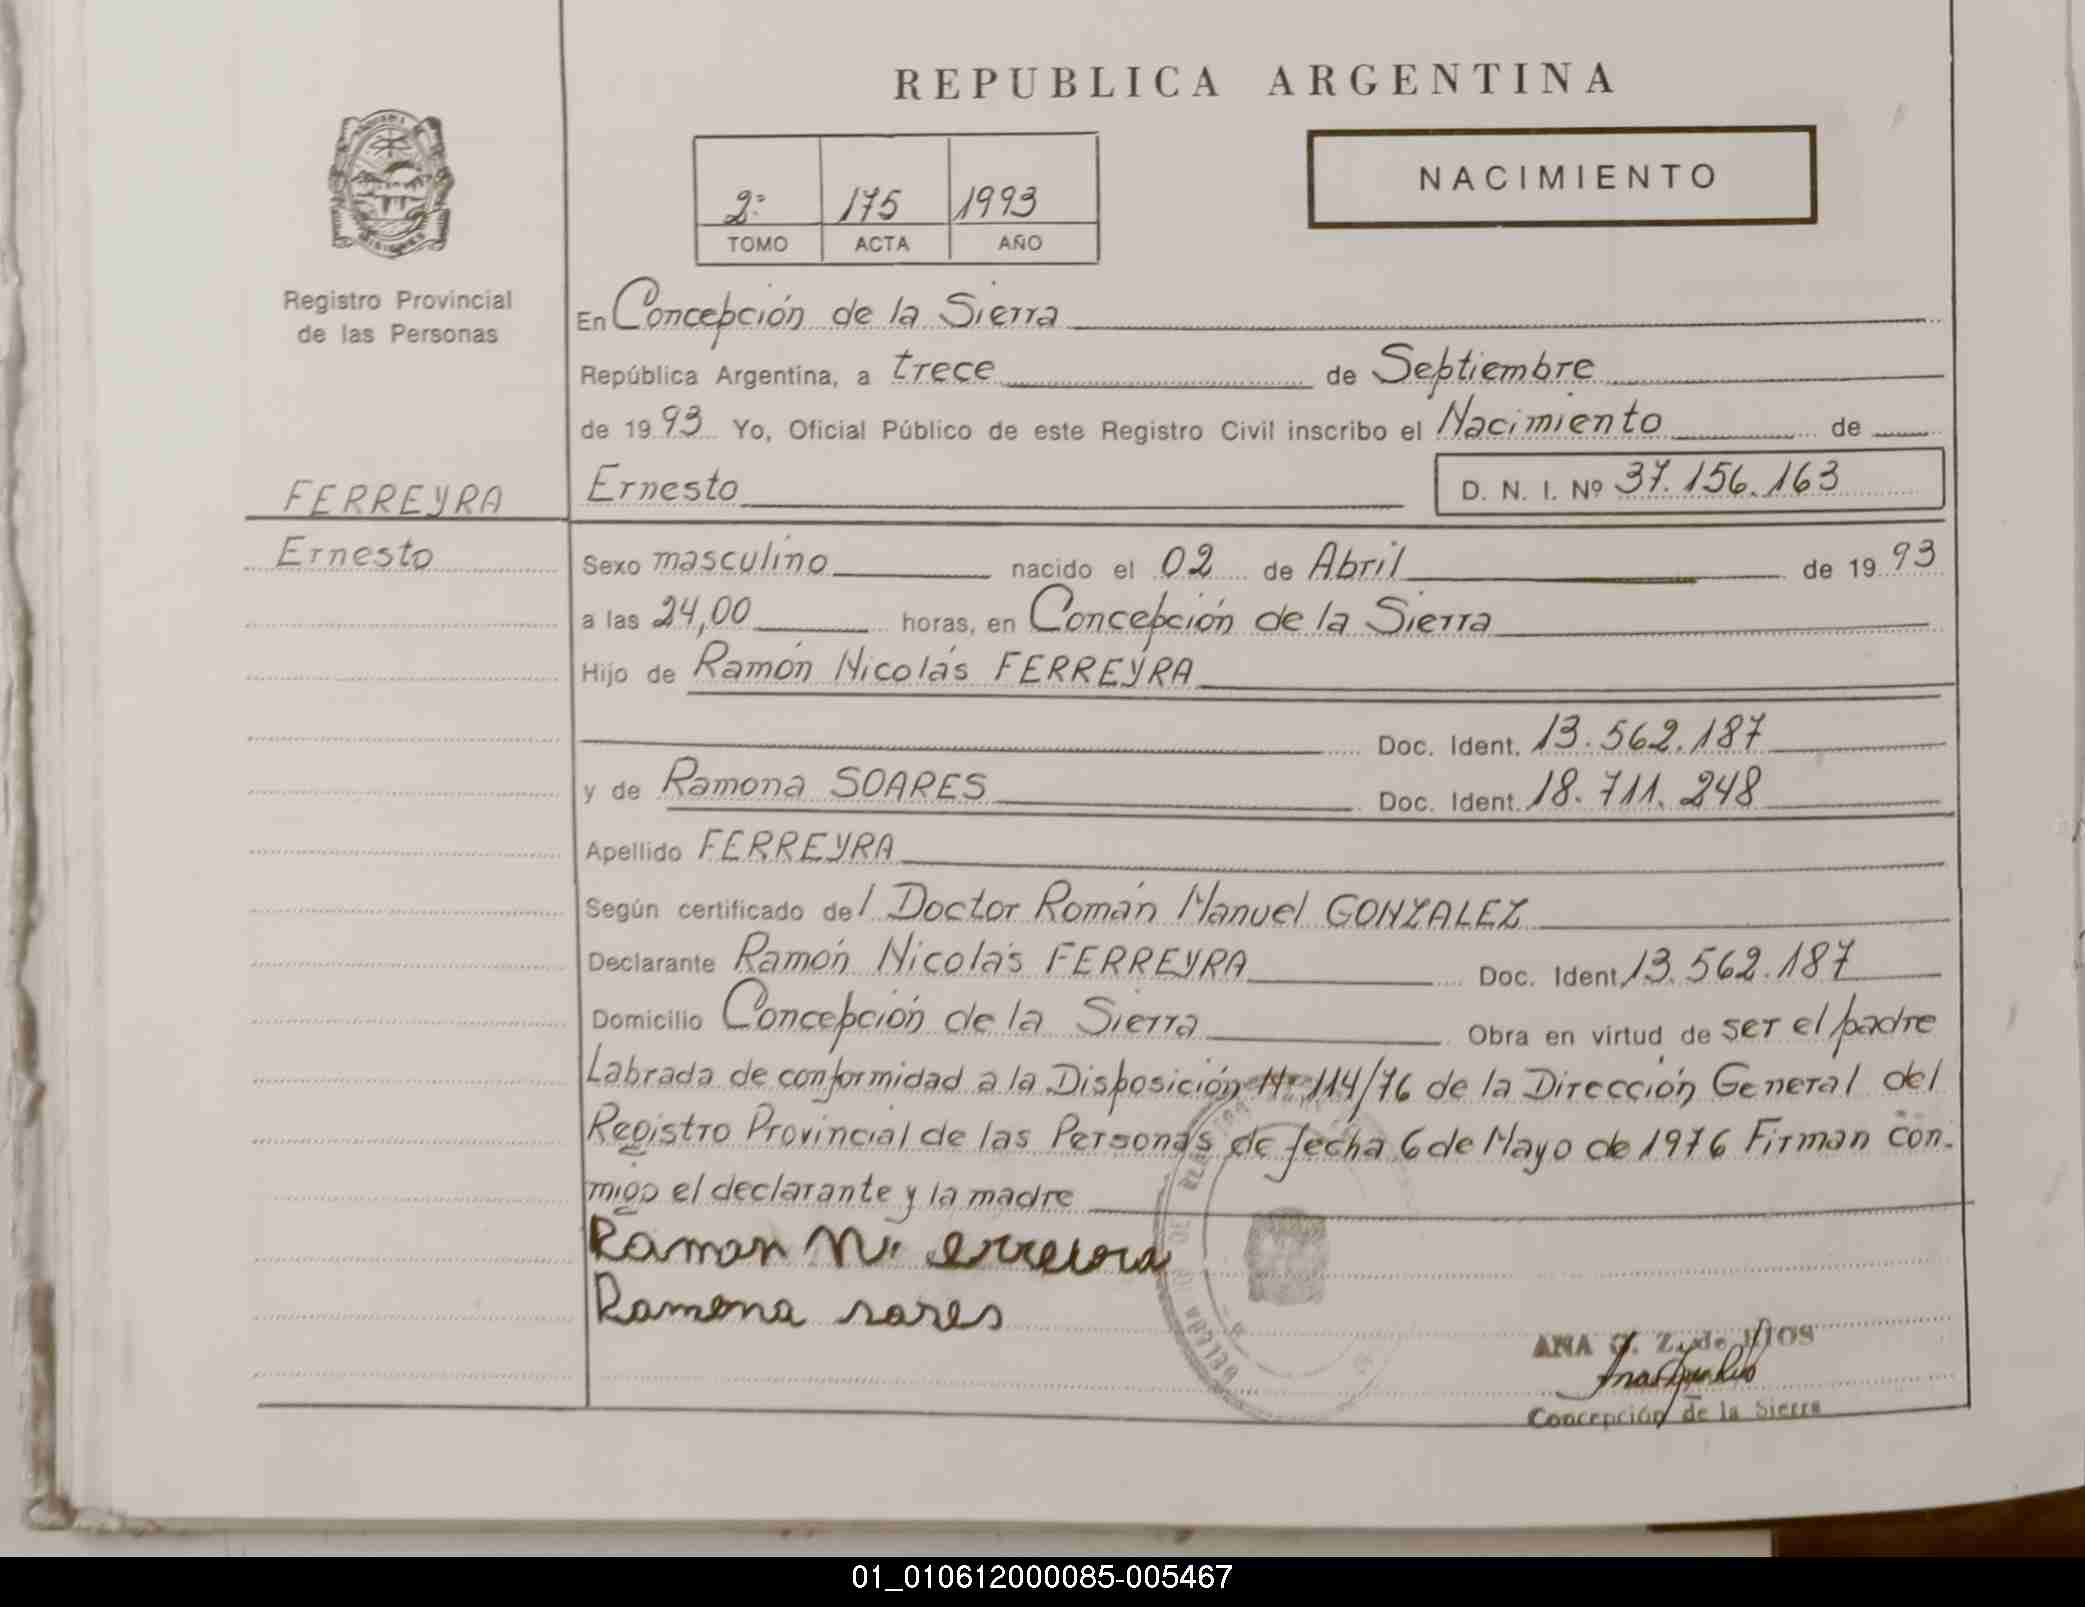 REPUBLICA ARGENTINA
2º 175 1993
TOMO ACTA AÑO
NACIMIENTO
Registro Provincial
de las Personas
En Concepción de la Sierra
República Argentina, a trece de Septiembre
de 1993 Yo, Oficial Público de este Registro Civil inscribo el Nacimiento de
FERREYRA
Ernesto
Ernesto D. N. I. Nº 37.156.163
Sexo masculino nacido el 02 de Abril de 1993
a las 24,00 horas, en Concepción de la Sierra
Hijo de Ramón Nicolás FERREYRA
Doc. Ident. 13.562.187
y de Ramona SOARES Doc. Ident. 18.711.248
Apellido FERREYRA
Según certificado del Doctor Román Manuel GONZALEZ
Declarante Ramón Nicolás FERREYRA Doc. Ident. 13.562.187
Domicilio Concepción de la Sierra Obra en virtud de ser el padre
Labrada de conformidad a la Disposición Nº 114/76 de la Dirección General del
Registro Provincial de las Personas de fecha 6 de Mayo de 1976 Firman con-
migo el declarante y la madre
Ramon
Ramona sares
ANA
Concepción de la Sierra
01_010612000085-005467